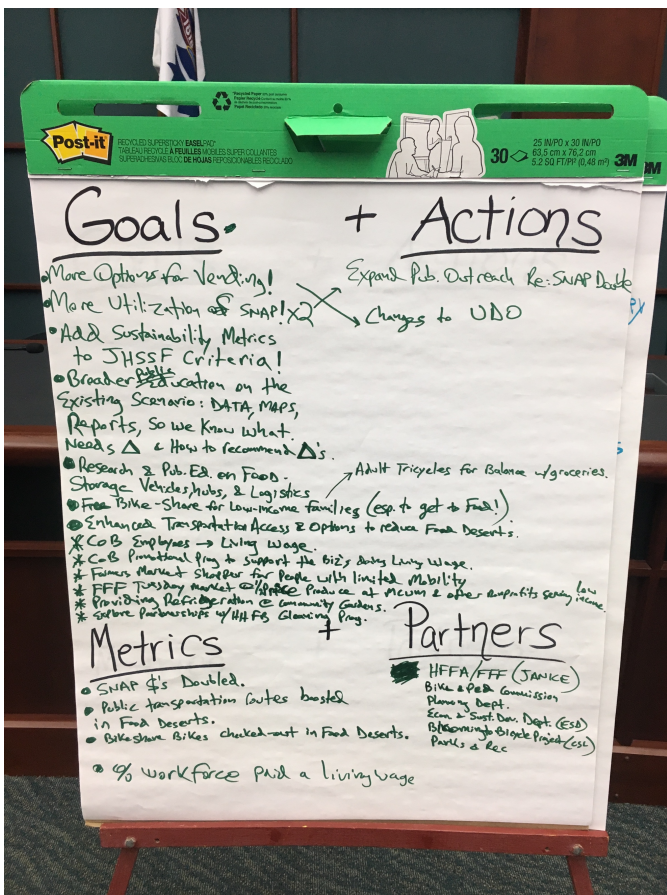 Post-it
RECYCLED SUPERSTICKY EASELPAD
TABLEAU RECYCLÉ À FEUILLES MOBILES SUPER COLLANTES
SUPERADHESIVAS BLOC DE HOJAS REPOSICIONABLES RECICLADO
30
25 IN/PO x 30 IN/PO
63,5 cm x 76,2 cm
5.2 SQ FT/PI² (0,48 m²)
3M
3M
Goals + Actions
• More Options for Vending!
Expand Pub. Outreach Re: SNAP Double
• More Utilization of SNAP! x2
Changes to UDO
• Add Sustainability Metrics
to JHSSF Criteria!
• Broader Public Education on the
Existing Scenario: DATA, MAPS,
Reports, So we Know what
Needs Δ & How to recommend Δ's.
• Research & Pub. Ed. on Food
Storage Vehicles, hubs, & Logistics
Adult Tricycles for Balance w/groceries.
• Free Bike-Share for Low-income families (esp. to get to Food!)
• Enhanced Transportation Access & Options to reduce Food Deserts.
* CoB Employees → Living Wage.
* CoB Promotional Prog to support the Biz's doing Living Wage.
* Farmers Market Shopper for People with limited Mobility
* FFF Tuesday Market Produce at MCUM & other nonprofits serving low income.
* Providing Refrigeration @ Community Gardens.
* Explore Partnerships w/ HHFB Gleaning Prog.
Metrics + Partners
• SNAP $'s Doubled.
• Public transportation routes boosted
in Food Deserts.
• Bikeshare Bikes checked-out in Food Deserts.
• % workforce paid a living wage
HFFA/FFF (JANKE)
Bike & Ped Commission
Planning Dept.
Econ. & Sust. Dev. Dept. (ESD)
Bloomington Bicycle Project (CSL)
Parks & Rec